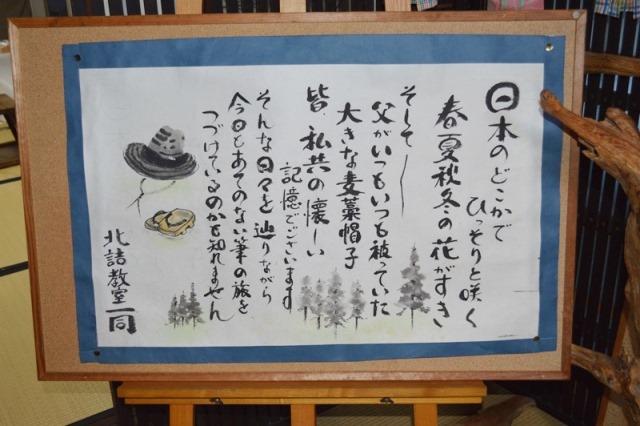 日本のどこかで
ひっそりと咲く
春夏秋冬の花がすき
そして
父がいつもいつも被っていた
大きな麦藁帽子
皆、私共の懐しい
記憶でございます
そんな日々を辿りながら
今日もあてのない筆の旅を
つづけているのかも知れません
北詰教室一同